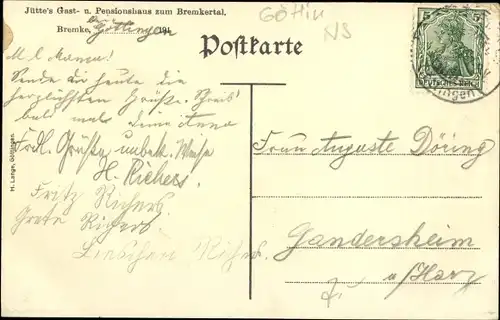 Jütte's Gast- u. Pensionshaus zum Bremkertal.
Bremke, Göttingen 191
Göttin
NS
Postkarte
5 5
DEUTSCHES REICH
M. l. Mama!
Sende dir heute die
herzlichsten Grüße. Schreib'
bald mal deine Anna
Frdl. Grüße unbek. Weise
H. Richers.
Fritz Richers.
Grete Richers
Lieschen Richers.
H. Lange, Göttingen.
Frau Auguste Döring
Gandersheim
a/Harz